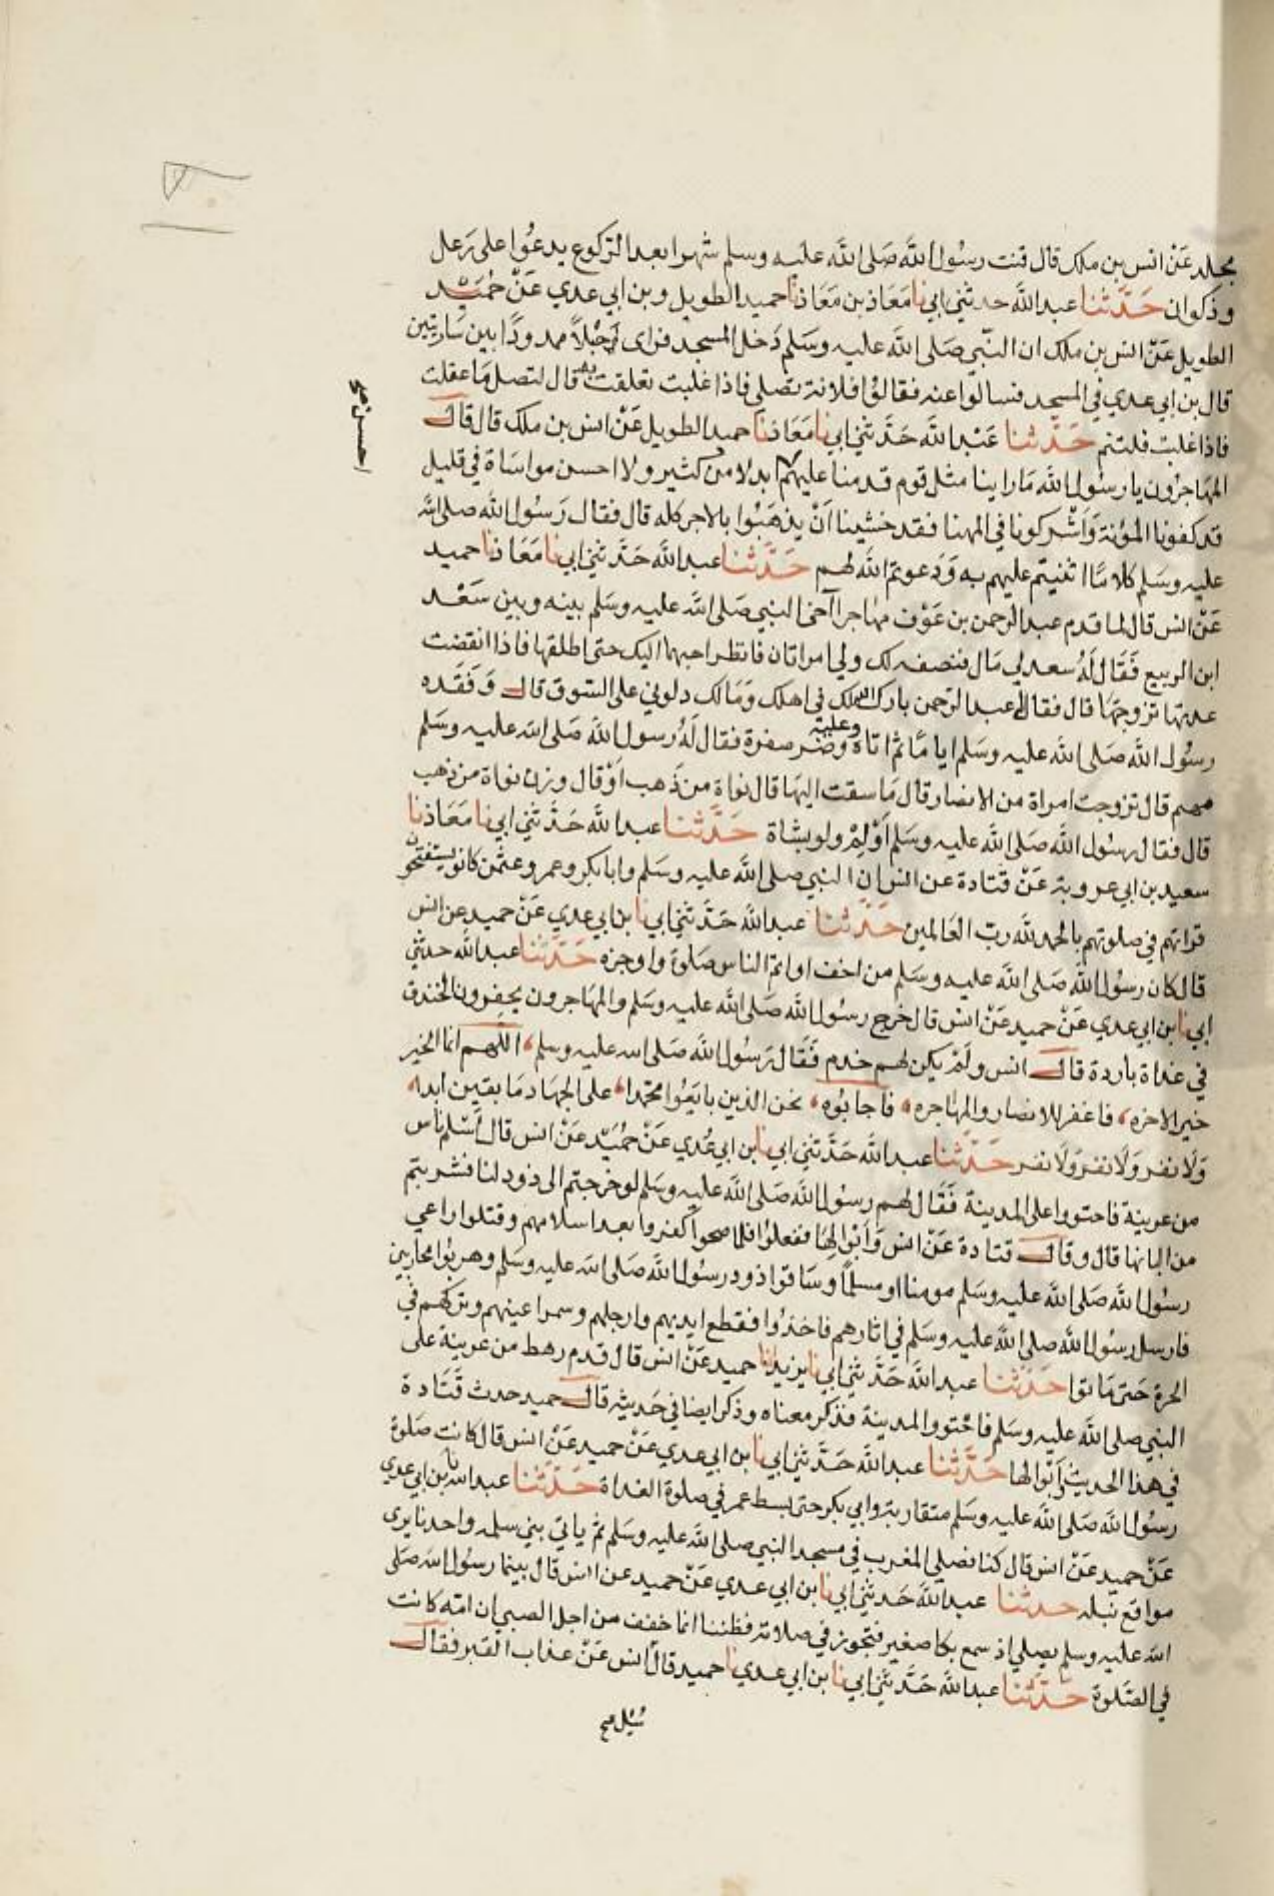 مجلد عَنْ انس بن ملك قال قنت رسُول الله صَلى الله عليه وسلم شهرا بعد الرّكوع يدعُوا على رَعل
وذكوان حَدَّثنا عبد الله حدثني ابي نا مَعَاذ بن مَعَاذ نا حميد الطويل وبن ابي عدي عَنْ حُمَيْد
الطويل عَنْ انس بن ملك ان النّبي صَلى الله عليه وسَلم دَخل المسجد فراى حَبْلاً ممدودًا بين سَاريتين
قال بن ابي عدي في المسجد فسالوا عنه فقالوُا فلانة تصلي فاذا غلبت تعلقت به قال لتصل مَا عقلت
فاذا غلبت فلتنم حَدَّثنا عَبْد الله حَدَّثني ابي نا مَعَاذ نا حميد الطويل عَنْ انس بن ملك قال قال
المهَاجرُون يا رسُول الله مَا راينا مثل قوم قدمنا عليهم بدلا من كثير ولا احسن مواسَاة في قليل
احسن صح
قد كفونا المؤنة وَاَشْركونا في المهنا فقد خشينا اَنْ يذهَبُوا بالاجر كله قال فقال رَسُول الله صلى الله
عليه وسَلم كلا مَّا اثنيتم عليهم به وَدعوتم الله لهم حَدَّثنا عبد الله حَدَّثني ابي نا مَعَاذ نا حميد
عَنْ انس قال لما قدم عبد الرحمن بن عَوْف مهَاجرا آخى النبي صَلى الله عليه وسَلم بينه وبين سَعْد
ابن الربيع فَقَال لَهُ سعد لي مَال فنصفه لك ولي امراتان فانظر احبهما اليك حتى اطلقها فاذا انقضت
عدتها تزوجتهَا قال فقال له عبد الرّحمن بارك الله لك في اهلك وَمَالك دلوني على السّوق قال وَفَقَده
رسُول الله صَلى الله عليه وسَلم ايامًا ثم اتاه وعليه وضر صفرة فقال لَهُ رسُول الله صَلى الله عليه وسَلم
مهيم قال تزوجت امراة من الانصار قال مَا سقت اليهَا قال نواة من ذَهب اَوْ قال وزن نواة من ذهب
قال فقال رسُول الله صَلى الله عليه وسَلم اَوْلمْ ولو بشاة حَدَّثنا عبد الله حَدَّثني ابي نا مَعَاذ نا
سعيد بن ابي عروبة عَنْ قتادة عن انس ان النبي صلى الله عليه وسَلم وابا بكر وعمر وعثمن كانوا يستفتحون
قراتهم في صلوتهم بالحمد لله ربّ العَالمين حَدَّثنا عبد الله حَدَّثني ابي نا بن ابي عدي عَنْ حميد عن انس
قال كان رسُول الله صَلى الله عليه وسَلم من اخف او اتم الناس صَلوة واوجزه حَدَّثنا عبد الله حدثني
ابي نا ابن ابي عدي عَنْ حميد عَنْ انس قال خرج رسُول الله صَلى الله عليه وسَلم والمهَاجرون يحفرون الخندق
في غداة باردة قال انس ولَمْ يكن لهم خدم فَقَال رَسُول الله صَلى الله عليه وسلم، اللهم انما الخير
خير الاخره، فاغفر للانصار والمهاجره، فاجابوُه، نحن الذين بايَعوا محمّدا، على الجهَاد مَا بقين ابدا،
وَلَا نفر وَلَا نفر وَلَا نفر حَدَّثنا عبد الله حَدَّثني ابي نا بن ابي عُدي عَنْ حُمَيْد عَنْ انس قال اسْلم ناس
من عرينة فاحتووا على المدينة فَقَال لهم رسُول الله صَلى الله عليه وسَلم لو خرجتم الى ذود لنا فشربتم
من البانها قال وقال قتادة عَنْ انس وَاَبْوالهَا ففعلوُا فلما صحوا كفروا بعد اسلامهم وقتلوا راعي
رسُول الله صَلى الله عليه وسَلم مومنا او مسلمًا وسَاقوا ذود رسُول الله صَلى الله عليه وسَلم وهربُوا محاربين
فارسل رسُول الله صلى الله عليه وسَلم في اثارهم فاخذوُا فقطع ايديهم وارجلهم وسمر اعينهم وتركهم في
الحرة حَتى مَاتوا حَدَّثنا عبد الله حَدَّثني ابي نا يزيد انا حميد عَنْ انس قال قدم رهط من عرينة على
النبي صلى الله عليه وسَلم فاجْتووا المدينة فذكر معناه وذكر ايضا في حَديثه قال حميد حدث قَتَادة
في هذا الحديث وَاَبْوالها حَدَّثنا عبد الله حَدَّثني ابي نا بن ابي عدي عَنْ حميد عَنْ انس قال كانت صَلوة
رسُول الله صَلى الله عليه وسَلم متقاربة وابي بكر حتى بسط عمر في صلوة الغداة حَدَّثنا عبد الله نا بن ابي عدي
عَنْ حميد عَنْ انس قال كنا نصلي المغرب في مسجد النبي صلى الله عليه وسَلم ثم ياتي بني سلمه واحدنا يرى
مواقع نبله حدثنا عبد الله حَدثني ابي نا بن ابي عدي عَنْ حميد عن انس قال بينما رسُول الله صَلى
الله عليه وسلم يصلي اذ سمع بكا صغير فتجوز في صلاته فظننا انما خفف من اجل الصبي ان امّه كانت
في الصّلوة حَدَّثنا عبد الله حَدَّثني ابي نا بن ابي عدي نا حميد قال انس عَنْ عذاب القبر فقال
سُئل صح